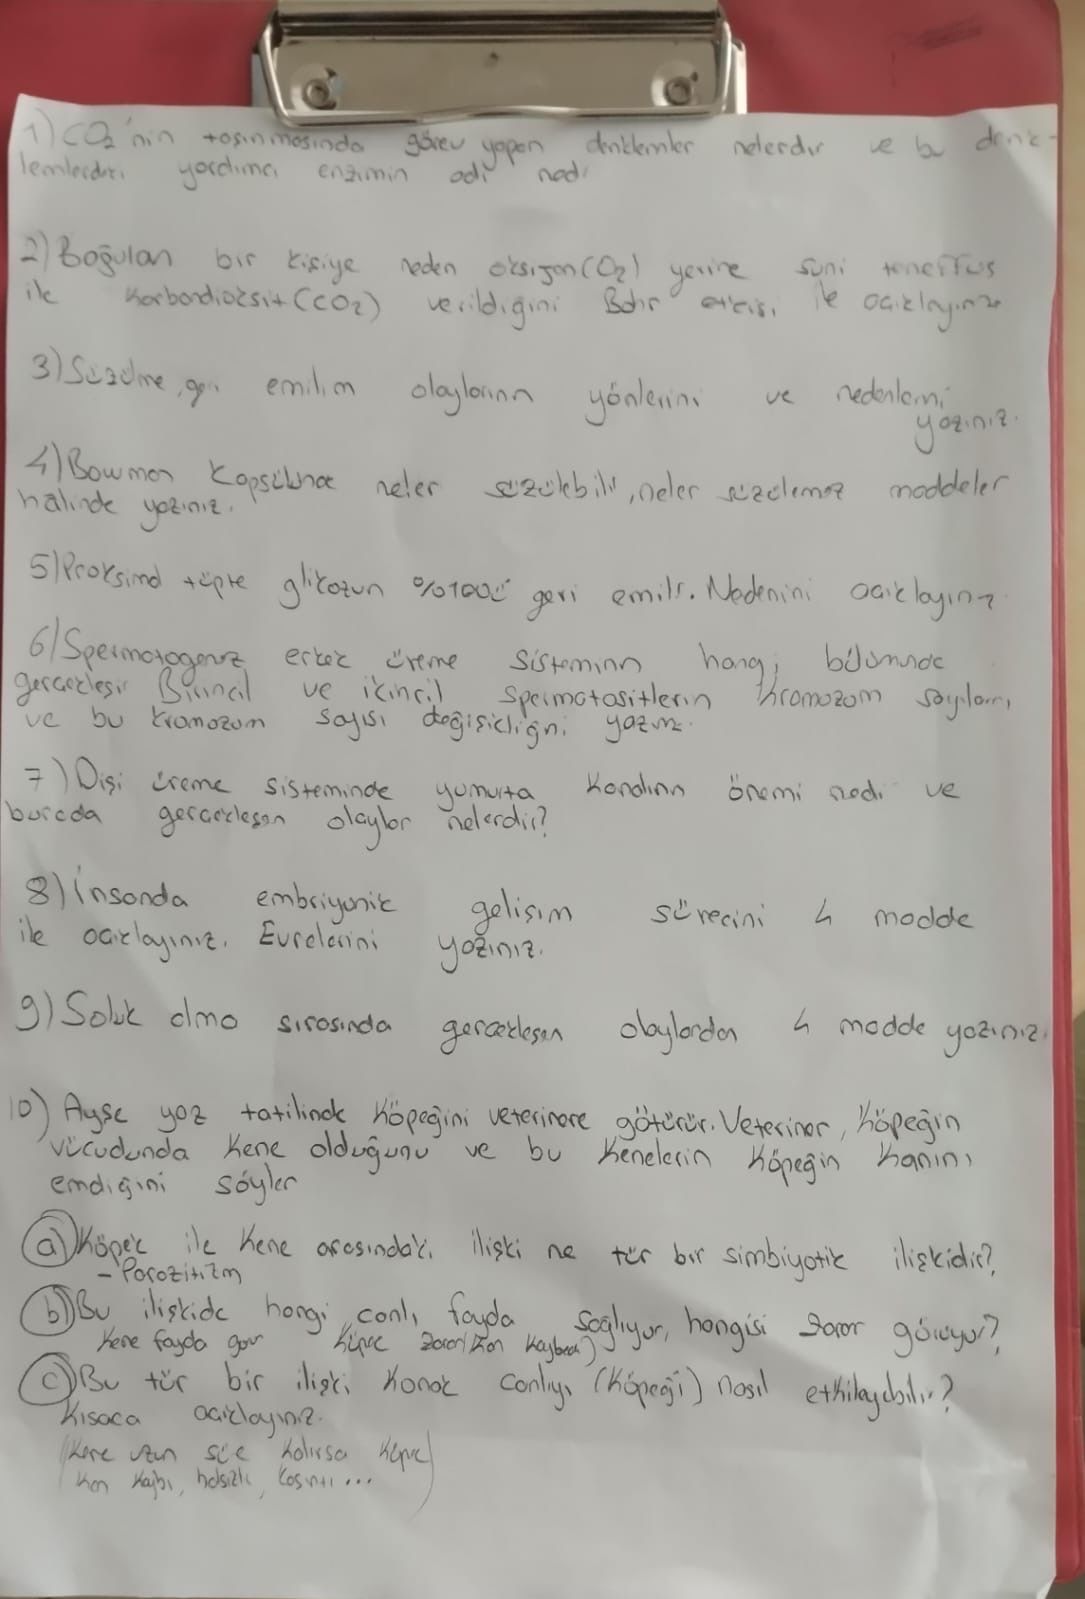 1) CO2'nin taşınmasında görev yapan denklemler nelerdir ve bu denk-
lemlerdeki yardımcı enzimin adı nedi
2) Boğulan bir kişiye neden oksijen (O2) yerine suni teneffüs
ile karbondioksit (CO2) verildiğini Bohr etkisi ile açıklayınız
3) Süzülme, geri emilim olaylarının yönlerini ve nedenlerini
yazınız.
4) Bowman kapsülünde neler süzülebilir, neler süzülemez maddeler
halinde yazınız.
5) Proksimal tüpte glikozun %100ü geri emilir. Nedenini açıklayınız
6) Spermatogenez erkek üreme sisteminin hangi bölümünde
gerçekleşir Birincil ve ikincil spermatositlerin kromozom sayıları
ve bu kromozom sayısı değişikliğini yazınız.
7) Dişi üreme sisteminde yumurta kanalının önemi nedir ve
burada gerçekleşen olaylar nelerdir?
8) İnsanda embriyonik gelişim sürecini 4 madde
ile açıklayınız. Evrelerini yazınız.
9) Soluk alma sırasında gerçekleşen olaylardan 4 madde yazınız.
10) Ayşe yaz tatilinde köpeğini veterinere götürür. Veteriner, köpeğin
vücudunda kene olduğunu ve bu kenelerin köpeğin kanını
emdiğini söyler
a) Köpek ile kene arasındaki ilişki ne tür bir simbiyotik ilişkidir?
- Parazitizm
b) Bu ilişkide hangi canlı fayda sağlıyor, hangisi zarar görüyor?
Kene fayda görür Köpek zarar (Kan kaybeder)
c) Bu tür bir ilişki konak canlıyı (köpeği) nasıl etkileyebilir?
Kısaca açıklayınız.
(Kene uzun süre kalırsa köpek)
kan kaybı, halsizlik, kaşıntı...